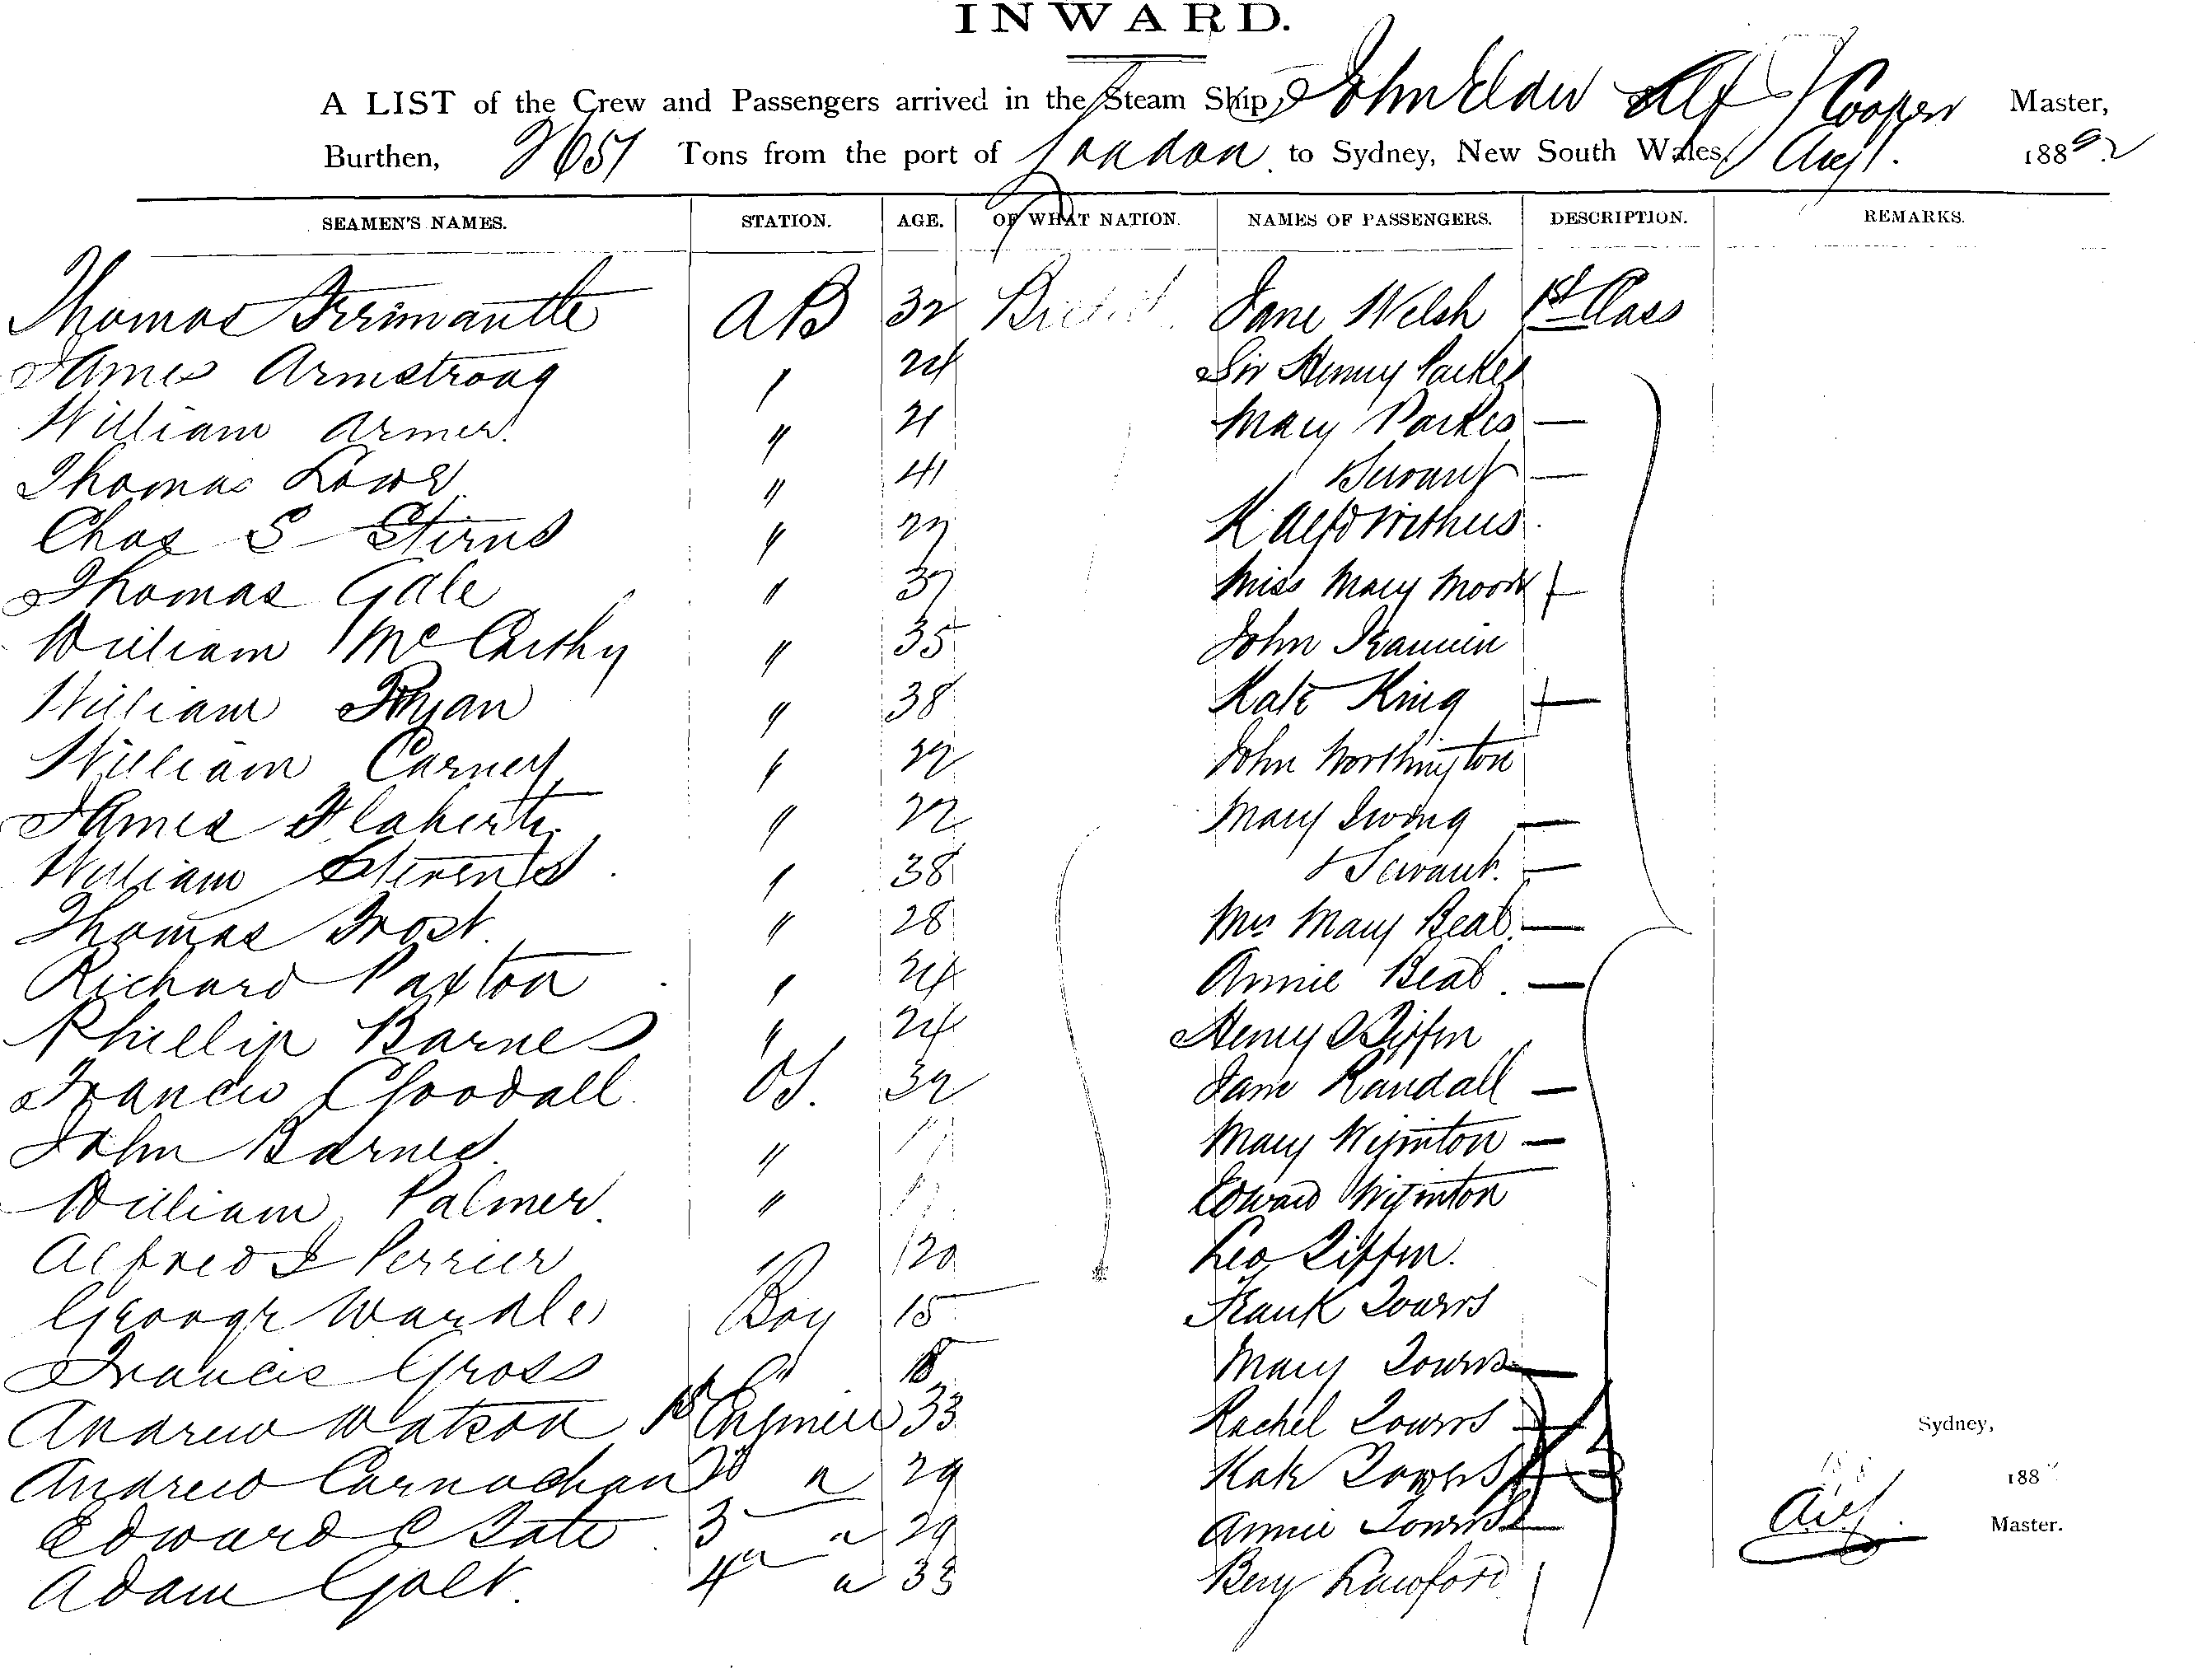 INWARD.
A LIST of the Crew and Passengers arrived in the Steam Ship, John Elder Alf Cooper Master,
Burthen, 2651 Tons from the port of London to Sydney, New South Wales, Aug 1882
SEAMEN'S NAMES. STATION. AGE. OF WHAT NATION. NAMES OF PASSENGERS. DESCRIPTION. REMARKS.
Thomas Frimantle AB 32 British Jane Welsh 1st Class
James Armstrong " 24 Sir Henry Parkes
William Armer " 21 Mary Parkes —
Thomas Lowe " 41 & Servant —
Chas S Stirns " 27
Thomas Gale " 37 Miss Mary Moore
William McCarthy " 35 John
William Ryan " 38 Kate King —
William Carney " 22 John Worthington
James Flaherty " 22 Mary Ewing —
William Stevens " 38 & Servant. —
Thomas Frost " 28 Mrs Mary Beal —
Richard Paxton " 24 Annie Beal. —
Phillip Barnes " 24 Henry
Francis Goodall OS. 32 Jane Randall —
John Barnes " Mary Wynton —
William Palmer " Edward Wynton
Alfred J Perrier " 20 Geo Tiffin.
George Wardle Boy 15 Frank Towns
Francis Gross " 18 Mary Towns —
Andrew Watson 1st Engineer 33 Rachel Towns —
Andrew Carnochan 2d " 29 Kate Towns —
Edward C Tate 3 " 29 Annie Towns —
Adam Galt. 4 " 33 Benj Lawford
Sydney,
188
Aug. Master.